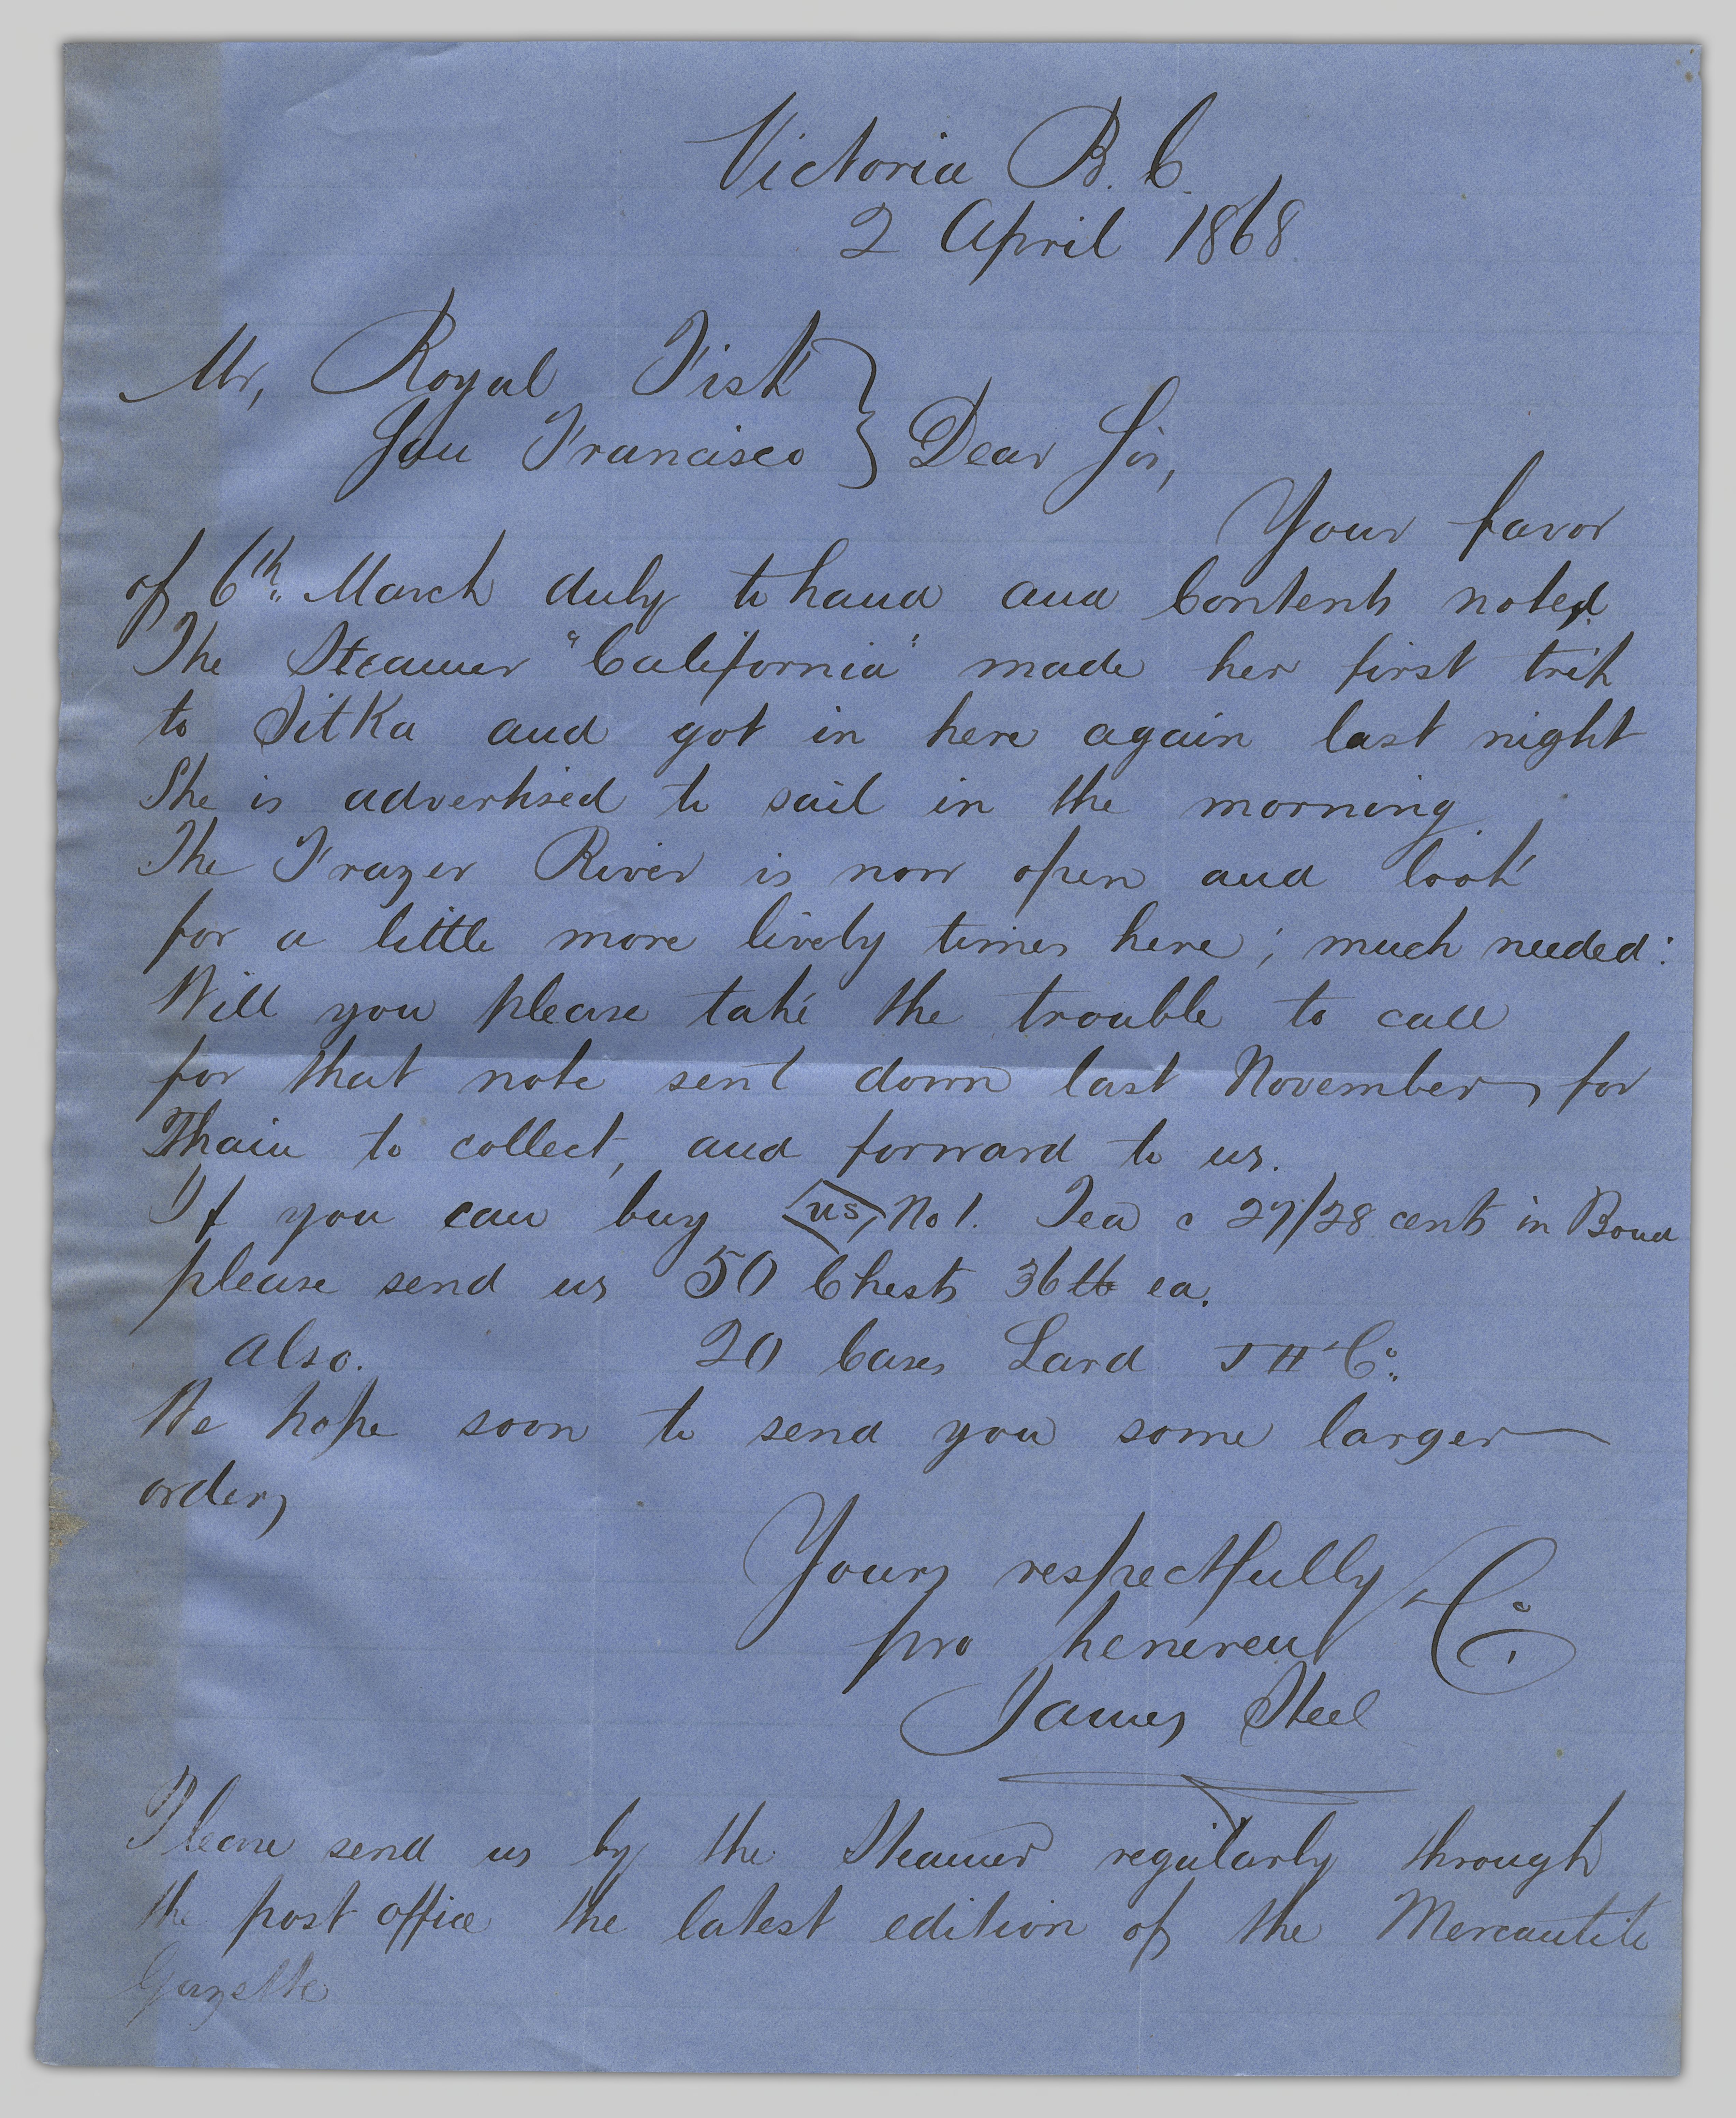 Victoria B. C.
2 April 1868
Mr, Royal Fisk
San Francisco } Dear Sir,
Your favor
of 6th. March duly to hand and Contents noted.
The Steamer "California" made her first trip
to Sitka and got in here again last night
She is advertised to sail in the morning
The Frazer River is now open and look
for a little more lively times here; much needed:
Will you please take the trouble to call
for that note sent down last November, for
Thain to collect, and forward to us.
If you can buy us No 1. Tea @ 27/28 cents in Bond
please send us 50 Chests 36 lb ea.
also. 20 Cases Lard J H Co.
We hope soon to send you some larger
orders
Yours respectfully
pro Co.
James Steel
Please send us by the Steamer regularly through
the post office the latest edition of the Mercantile
Gazette